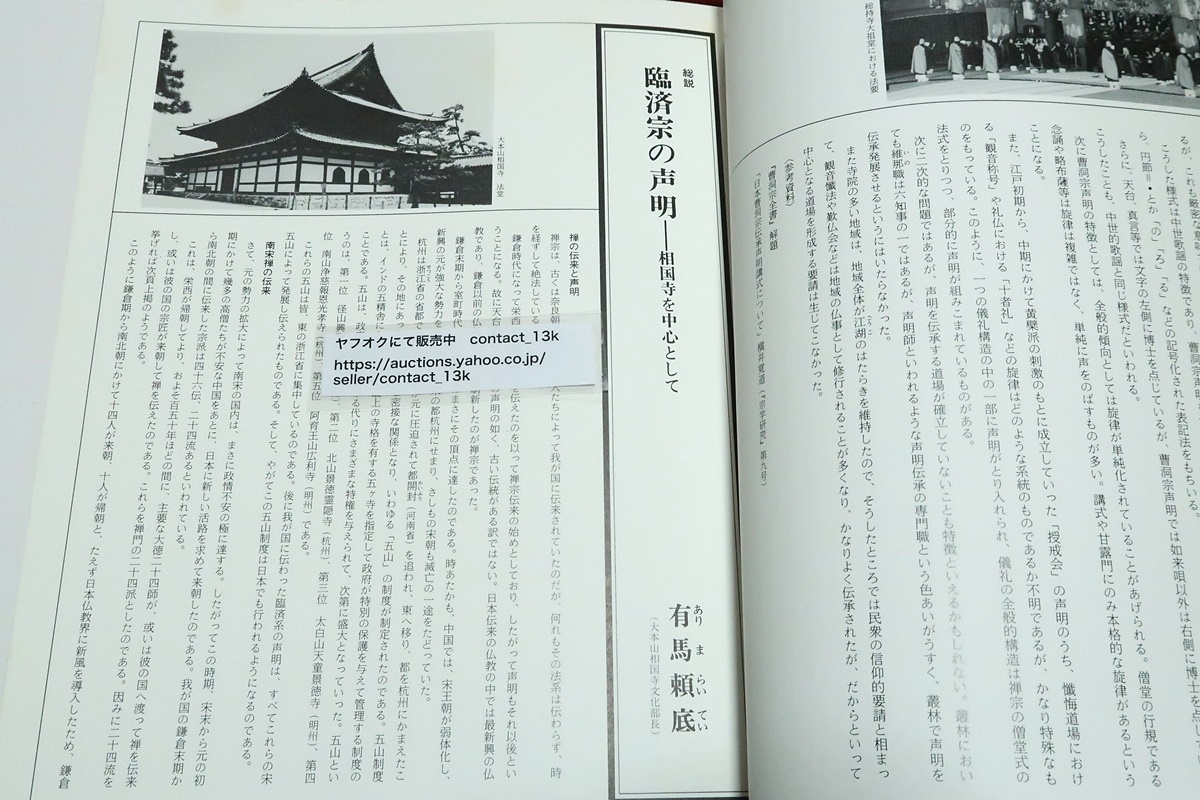 総持寺大祖堂における法要
こうした様式は中世歌謡の特徴であり、曹洞宗声明も
ら、円節＝・とか「の」「ろ」「る」などの記号化された表記法をもちいる。
さらに、天台、真言等では文字の左側に博士を点じているが、曹洞宗声明では如来唄以外は右側に博士を点し
こうしたことも、中世的歌謡と同じ様式だといわれる。
次に曹洞宗声明の特徴としては、全般的傾向としては旋律が単純化されていることがあげられる。僧堂の行規である
念誦や略布薩等は旋律は複雑ではなく、単純に声をのばすものが多い。講式や甘露門にのみ本格的な旋律があるという
ことになる。
また、江戸初期から、中期にかけて黄檗派の刺激のもとに成立していった「授戒会」の声明のうち、懺悔道場におけ
る「観音称号」や礼仏における「十者礼」などの旋律はどのような系統のものであるか不明であるが、かなり特殊なも
のをもっている。このように、一つの儀礼構造の中の一部に声明がとり入れられ、儀礼の全般的構造は禅宗の僧堂式の
法式をとりつつ、部分的に声明が組みこまれているものがある。
次に二次的な問題ではあるが、声明を伝承する道場が確立していないことも特徴といえるかもしれない。叢林におい
ても維那職は六知事の一ではあるが、声明師といわれるような声明伝承の専門職という色あいがうすく、叢林で声明を
伝承発展させるというにはいたらなかった。
また寺院の多い地域は、地域全体が江湖のはたらきを維持したので、そうしたところでは民衆の信仰的要請と相まっ
て、観音懺法や歎仏会などは地域の仏事として修行されることが多くなり、かなりよく伝承されたが、だからといって
中心となる道場を形成する要請は生じてこなかった。
（参考資料）
『曹洞宗全書』解題
「日本曹洞宗伝承声明講式について」横井覚道（『宗学研究』第九号）
総説
臨済宗の声明──相国寺を中心として
有馬頼底
ありまらいてい
（大本山相国寺文化部長）
大本山相国寺　法堂
禅の伝来と声明
禅宗は、古くは奈良朝
たちによって我が国に伝来されていたのだが、何れもその法系は伝わらず、時
を経ずして絶法している
鎌倉時代になって栄西
を伝えたのを以って禅宗伝来の始めとしており、したがって声明もそれ以後とい
うことになる。故に天台
の声明の如く、古い伝統がある訳ではない。日本伝来の仏教の中では最新興の仏
教であり、鎌倉以前の仏
新したのが禅宗であった。
鎌倉末期から室町時代
まさにその頂点に達したのである。時あたかも、中国では、宋王朝が弱体化し、
新興の元が強大な勢力を
の元に圧迫されて都開封（河南省）を追われ、東へ移り、都を杭州にかまえたこ
杭州は浙江省の省都で
の都杭州にせまり、さしもの宋朝も滅亡の一途をたどっていた。
とにより、その地にあっ
密接な関係となり、いわゆる「五山」の制度が制定されたのである。五山制度
とは、インドの五精舎に
上の寺格を有する五ヶ寺を指定して政府が特別の保護を与えて管理する制度の
ことである。五山は、政
る代りにさまざまな特権を与えられて、次第に盛大となっていった。五山とい
うのは、第一位　径山興
第二位　北山景徳霊隠寺（杭州）、第三位　太白山天童景徳寺（明州）、第四
位　南山浄慈報恩光孝寺（杭州）、第五位　阿育王山広利寺（明州）である。
これらの五山は皆、東の浙江省に集中しているのである。後に我が国に伝わった臨済系の声明は、すべてこれらの宋
五山によって発展し伝えられたものである。そして、やがてこの五山制度は日本でも行われるようになるのである。
南宋禅の伝来
さて、元の勢力の拡大によって南宋の国内は、まさに政情不安の極に達する。したがってこの時期、宋末から元の初
期にかけて幾多の高僧たちが不安な中国をあとに、日本に新しい活路を求めて来朝したのである。我が国の鎌倉末期か
ら南北朝の間に伝来した宗派は四十六伝、二十四流あるといわれている。
これは、栄西が帰朝してより、およそ百五十年ほどの間に、主要な大徳二十四師が、或いは彼の国へ渡って禅を伝来
し、或いは彼の国の宗匠が来朝して禅を伝えたのである。これらを禅門の二十四派としたのである。因みに二十四流を
挙げれば次頁上掲のようである。
このように鎌倉期から南北朝にかけて十四人が来朝、十人が帰朝と、たえず日本仏教界に新風を導入したため、鎌倉
ヤフオクにて販売中　contact_13k
https://auctions.yahoo.co.jp/
seller/contact_13k